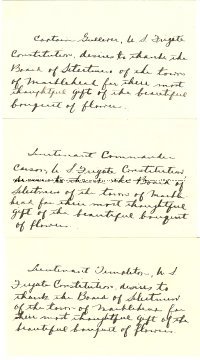 Captain Gulliver, U S Frigate
Constitution, desires to thank the
Board of Selectmen of the town
of Marblehead for their most
thoughtful gift of the beautiful
bouquet of flowers.
Lieutenant Commander
Carson, U S Frigate Constitution
desires to thank the Board of
Selectmen of the town of Marble
head for their most thoughtful
gift of the beautiful bouquet
of flowers.
Lieutenant Templeton, U S
Frigate Constitution, desires to
thank the Board of Selectmen
of the town of Marblehead for
their most thoughtful gift of the
beautiful bouquet of flowers